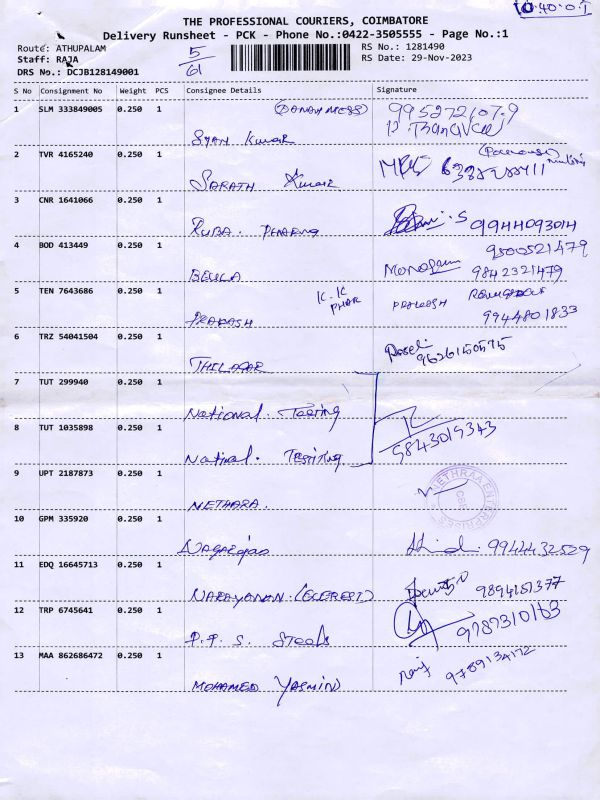 10.40.0.1
THE PROFESSIONAL COURIERS, COIMBATORE
Delivery Runsheet - PCK - Phone No.:0422-3505555 - Page No.:1
Route: ATHUPALAM 5/61 RS No.: 1281490
Staff: RAJA RS Date: 29-Nov-2023
DRS No.: DCJB128149001
S No Consignment No Weight PCS Consignee Details Signature
1 SLM 333849005 0.250 1 9952721079
Syan Kumar
2 TVR 4165240 0.250 1
Sarath Kumar
3 CNR 1641066 0.250 1 S 9944093014
RUBA.
4 BOD 413449 0.250 1 9500521479
BEULA 9842321479
5 TEN 7643686 0.250 1 K.K
PRAKASH PRAKASH 9944801833
6 TRZ 54041504 0.250 1
THILAGAR 9626150575
7 TUT 299940 0.250 1
National. Testing
8 TUT 1035898 0.250 1 9843019343
National. Testing
9 UPT 2187873 0.250 1 NETHRAA ENTERPRISES CBE
NETHARA.
10 GPM 335920 0.250 1
Nagarajao 9944432529
11 EDQ 16645713 0.250 1
NARAYONAN. 9894151377
12 TRP 6745641 0.250 1
P.P. S. Steels 9787310163
13 MAA 862686472 0.250 1 9789134172
MOHAMED YASMIN